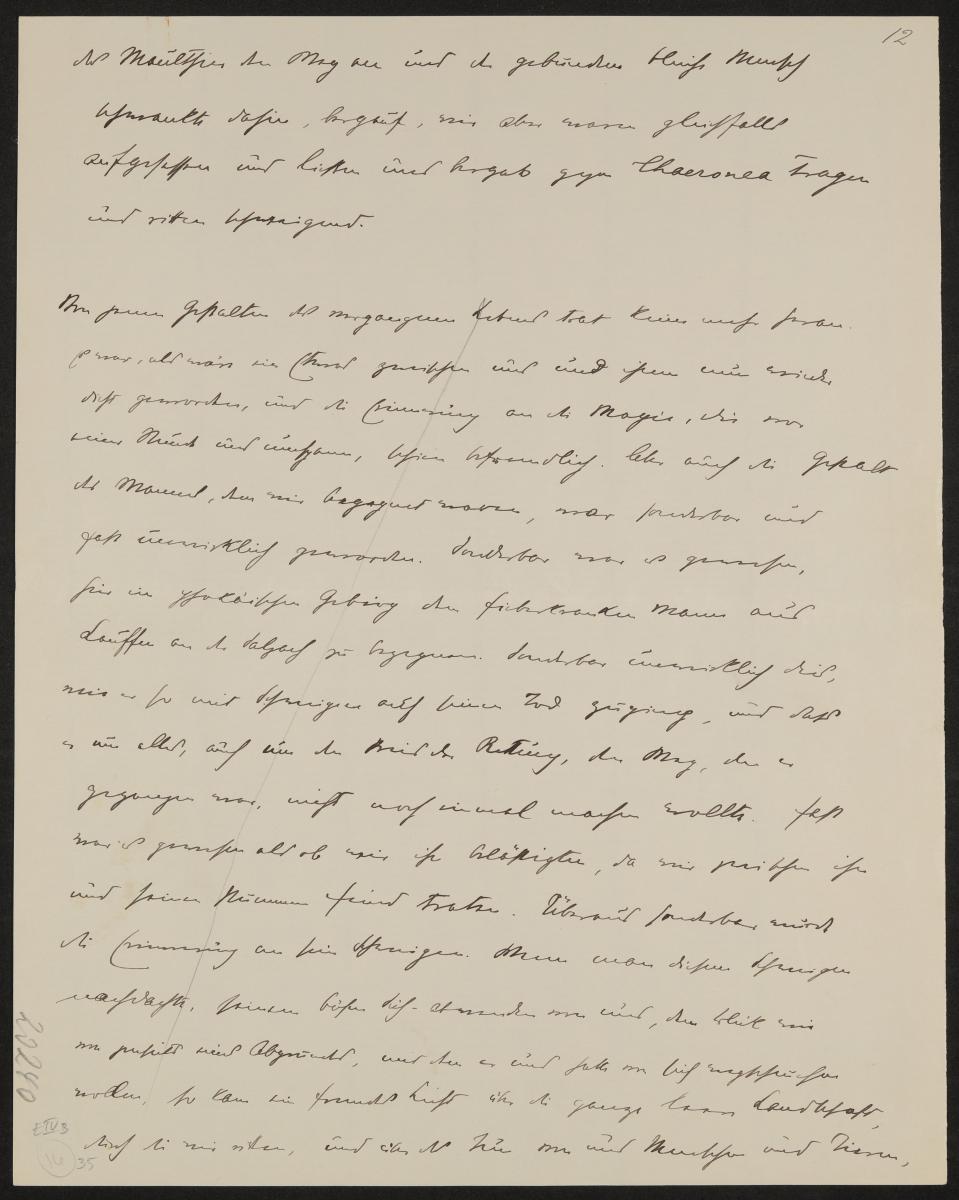 12
des Maultieres den Weg an und der gebundene bleiche Mensch
schwankte dahin, bergauf, wir aber waren gleichfalls
aufgesessen und ließen uns bergab gegen Chaeronea tragen
und ritten schweigend.
Von jenen Gestalten des vergangenen Lebens trat keine mehr heran.
Es war, als wäre ein zwischen uns und ihnen nun wieder
dicht geworden, und die Erinnerung an die Magie, die vor
einer Stunde uns umspann, schien befremdlich. Aber auch die Gestalt
des Mannes, dem wir begegnet waren, war sonderbar und
fast unwirklich geworden. Sonderbar war es gewesen,
hier im phokäischen Gebirg dem fieberkranken Mann aus
Lauffen an der Salzach zu begegnen. Sonderbar unwirklich dies,
wie er so mit Schweigen auf seinen Tod zuging, und dass
er um alles, auch um den Preis der Rettung, den Weg, den er
gegangen war, nicht noch einmal machen wollte. Fast
war es gewesen als ob wir ihn belästigten, da wir zwischen ihn
und seinen stummen Feind traten. Überaus sonderbar wurde
die Erinnerung an sein Schweigen. Wenn man diesem Schweigen
nachdachte, seinem bösen Sich-abwenden von uns, dem Blick wie
von jenseits eines Abgrunds, mit dem er uns hatte von sich wegscheuchen
wollen, so kam ein fremdes Licht über die ganze leere Landschaft,
durch die wir ritten, und über das Tun von uns Menschen und Tieren,
20240
E IV B
35